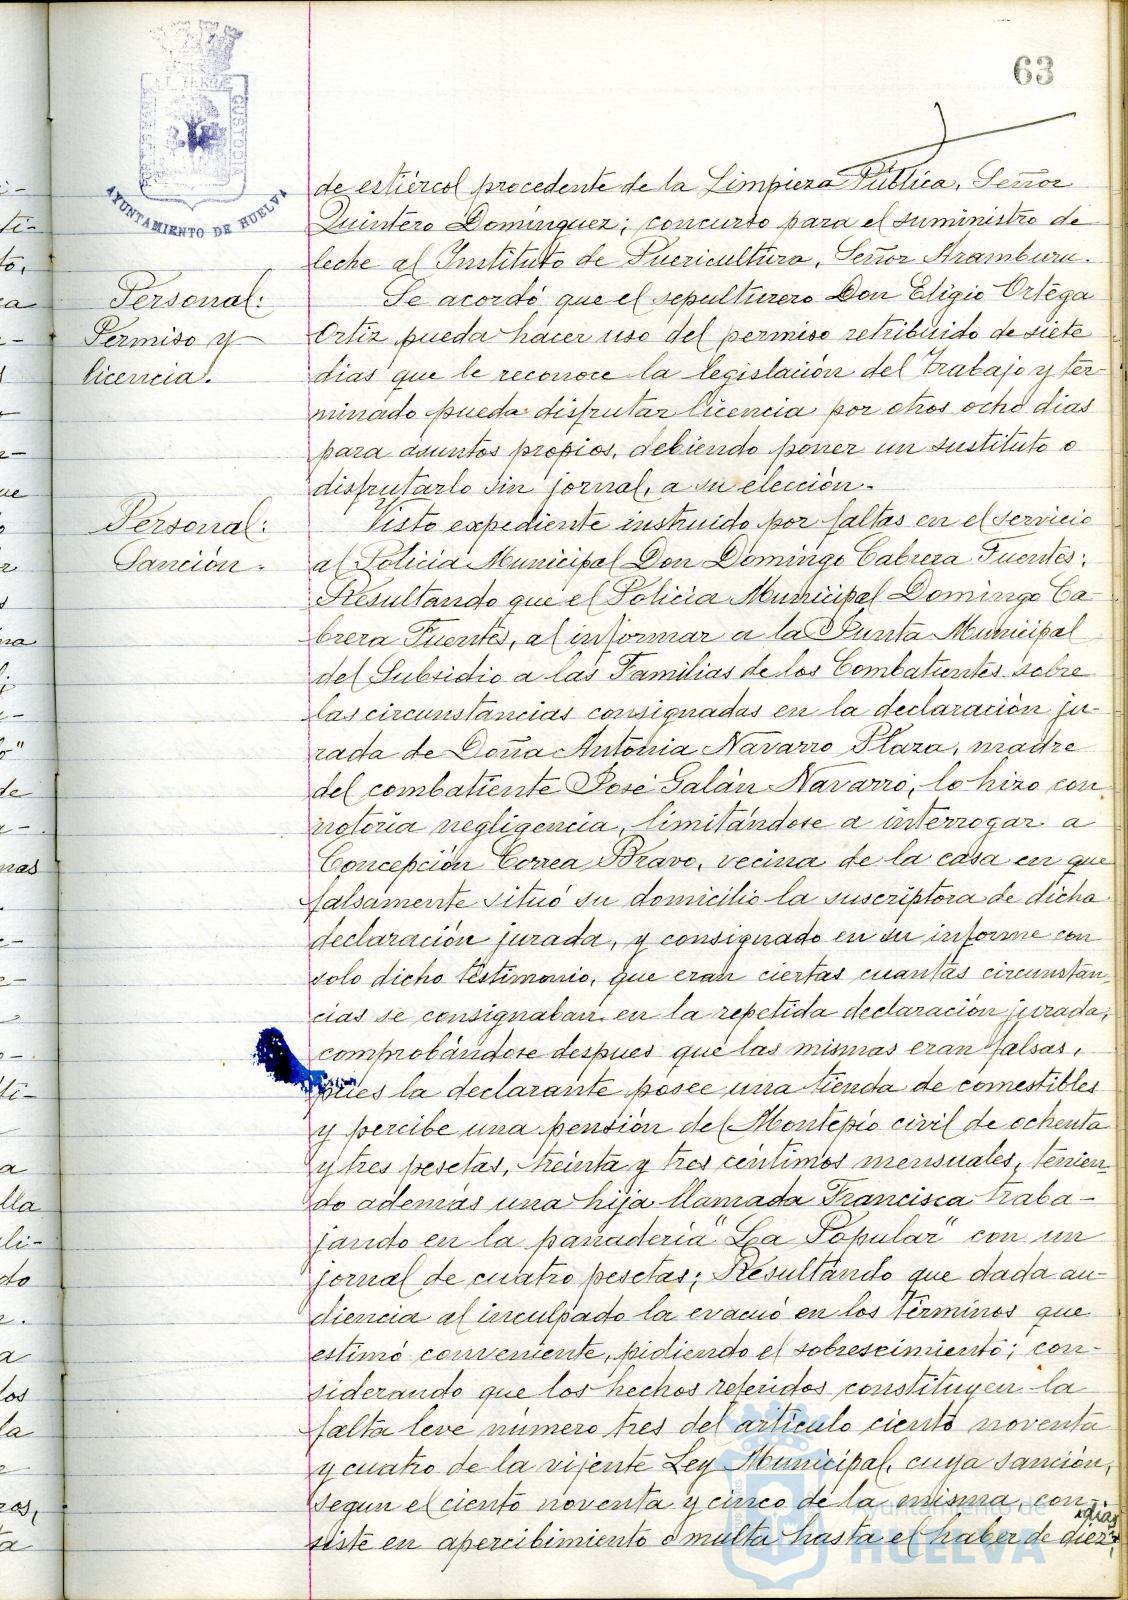 63
AYUNTAMIENTO DE HUELVA
de estiércol procedente de la Limpieza Pública, Señor
Quintero Domínguez; concurso para el suministro de
leche al Instituto de Puericultura, Señor Aramburu.
Personal:
Permiso y
licencia.
Se acordó que el sepulturero Don Eligio Ortega
Ortiz pueda hacer uso del permiso retribuido de siete
dias que le reconoce la legislación del Trabajo y ter-
minado pueda disfrutar licencia por otros ocho dias
para asuntos propios, debiendo poner un sustituto o
disfrutarlo sin jornal, a su elección.
Personal:
Sanción.
Visto expediente instruido por faltas en el servicio
al Policia Municipal Don Domingo Cabrera Fuentes;
Resultando que el Policia Municipal Domingo Ca-
brera Fuentes, al informar a la Junta Municipal
del Subsidio a las Familias de los Combatientes sobre
las circunstancias consignadas en la declaración ju-
rada de Doña Antonia Navarro Plaza, madre
del combatiente José Galán Navarro, lo hizo con
notoria negligencia, limitándose a interrogar a
Concepción Correa Bravo, vecina de la casa en que
falsamente situó su domicilio la suscriptora de dicha
declaración jurada, y consignado en su informe con
solo dicho testimonio, que eran ciertas cuantas circunstan-
cias se consignaban en la repetida declaración jurada,
comprobándose despues que las mismas eran falsas,
pues la declarante posee una tienda de comestibles
y percibe una pensión del Montepío civil de ochenta
y tres pesetas, treinta y tres céntimos mensuales, tenien-
do además una hija llamada Francisca traba-
jando en la panadería "La Popular" con un
jornal de cuatro pesetas; Resultando que dada au-
diencia al inculpado la evacuó en los términos que
estimó conveniente, pidiendo el sobreseimiento; con-
siderando que los hechos referidos constituyen la
falta leve número tres del artículo ciento noventa
y cuatro de la vijente Ley Municipal, cuya sanción,
segun el ciento noventa y cinco de la misma, con-
siste en apercibimiento o multa hasta el haber de diez dias,
Ayuntamiento de
HUELVA